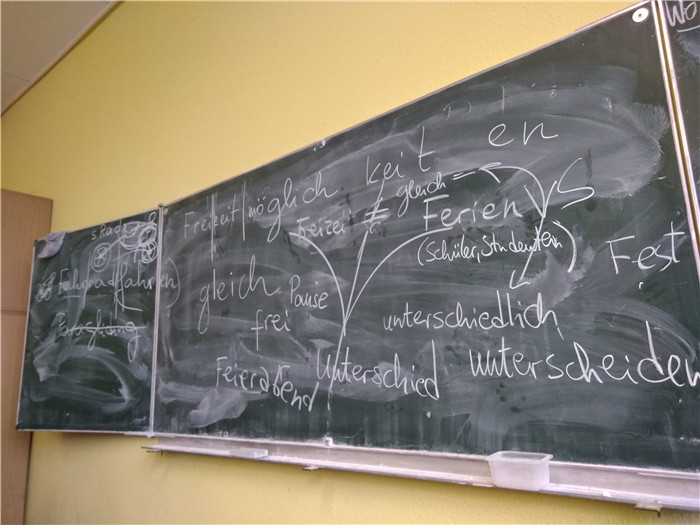 s Rad
Fahrradfahren
Paragliding
Freizeit|möglich|keit|en
Freizeit ≠ gleich =
Ferien
(Schüler, Studenten)
VS
gleich
Pause
frei
Feierabend
Unterschied
unterschiedlich
unterscheiden
Fest
Wo